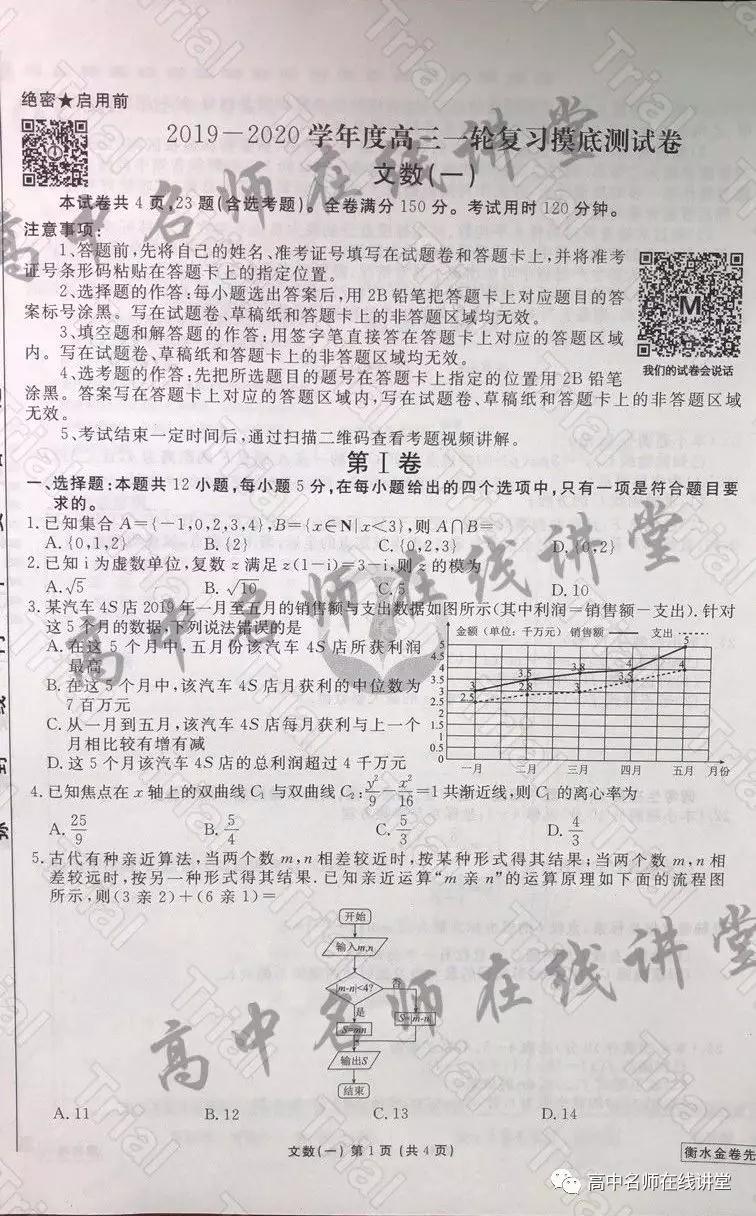 绝密★启用前
2019－2020 学年度高三一轮复习摸底测试卷
文数(一)
本试卷共 4 页,23 题(含选考题)。全卷满分 150 分。考试用时 120 分钟。
注意事项:
1、答题前,先将自己的姓名、准考证号填写在试题卷和答题卡上,并将准考
证号条形码粘贴在答题卡上的指定位置。
2、选择题的作答:每小题选出答案后,用 2B 铅笔把答题卡上对应题目的答
案标号涂黑。写在试题卷、草稿纸和答题卡上的非答题区域均无效。
3、填空题和解答题的作答:用签字笔直接答在答题卡上对应的答题区域
内。写在试题卷、草稿纸和答题卡上的非答题区域均无效。
4、选考题的作答:先把所选题目的题号在答题卡上指定的位置用 2B 铅笔
涂黑。答案写在答题卡上对应的答题区域内,写在试题卷、草稿纸和答题卡上的非答题区域
无效。
5、考试结束一定时间后,通过扫描二维码查看考题视频讲解。
我们的试卷会说话
第 I 卷
一、选择题:本题共 12 小题,每小题 5 分,在每小题给出的四个选项中,只有一项是符合题目要
求的。
1.已知集合 A={-1,0,2,3,4},B={x∈N|x<3},则 A∩B=
A.{0,1,2} B.{2} C.{0,2,3} D.{0,2}
2.已知 i 为虚数单位,复数 z 满足 z(1-i)=3-i,则 z 的模为
A.√5 B.√10 C.5 D.10
3.某汽车 4S 店 2019 年一月至五月的销售额与支出数据如图所示(其中利润=销售额-支出).针对
这 5 个月的数据,下列说法错误的是
A.在这 5 个月中,五月份该汽车 4S 店所获利润
最高
B.在这 5 个月中,该汽车 4S 店月获利的中位数为
7 百万元
C.从一月到五月,该汽车 4S 店每月获利与上一个
月相比较有增有减
D.这 5 个月该汽车 4S 店的总利润超过 4 千万元
金额（单位：千万元） 销售额 支出
5
4.5
4
3.5
3
2.5
2
1.5
1
0.5
0
3 3.5 3.8 4 5
2.5 2.8 3 3.5 4
一月 二月 三月 四月 五月 月份
4.已知焦点在 x 轴上的双曲线 C₁ 与双曲线 C₂:y²/9-x²/16=1 共渐近线,则 C₁ 的离心率为
A.25/9 B.5/4 C.5/3 D.4/3
5.古代有种亲近算法,当两个数 m,n 相差较近时,按某种形式得其结果;当两个数 m,n 相
差较远时,按另一种形式得其结果.已知亲近运算“m 亲 n”的运算原理如下面的流程图
所示,则(3 亲 2)+(6 亲 1)=
开始
输入m,n
|m-n|<4? 否
是
S=mn S=m-n
输出S
结束
A.11 B.12 C.13 D.14
文数(一) 第 1 页 (共 4 页)
衡水金卷先
高中名师在线讲堂
高中名师在线讲堂
高中名师在线讲堂
高中名师在线讲堂
Trial